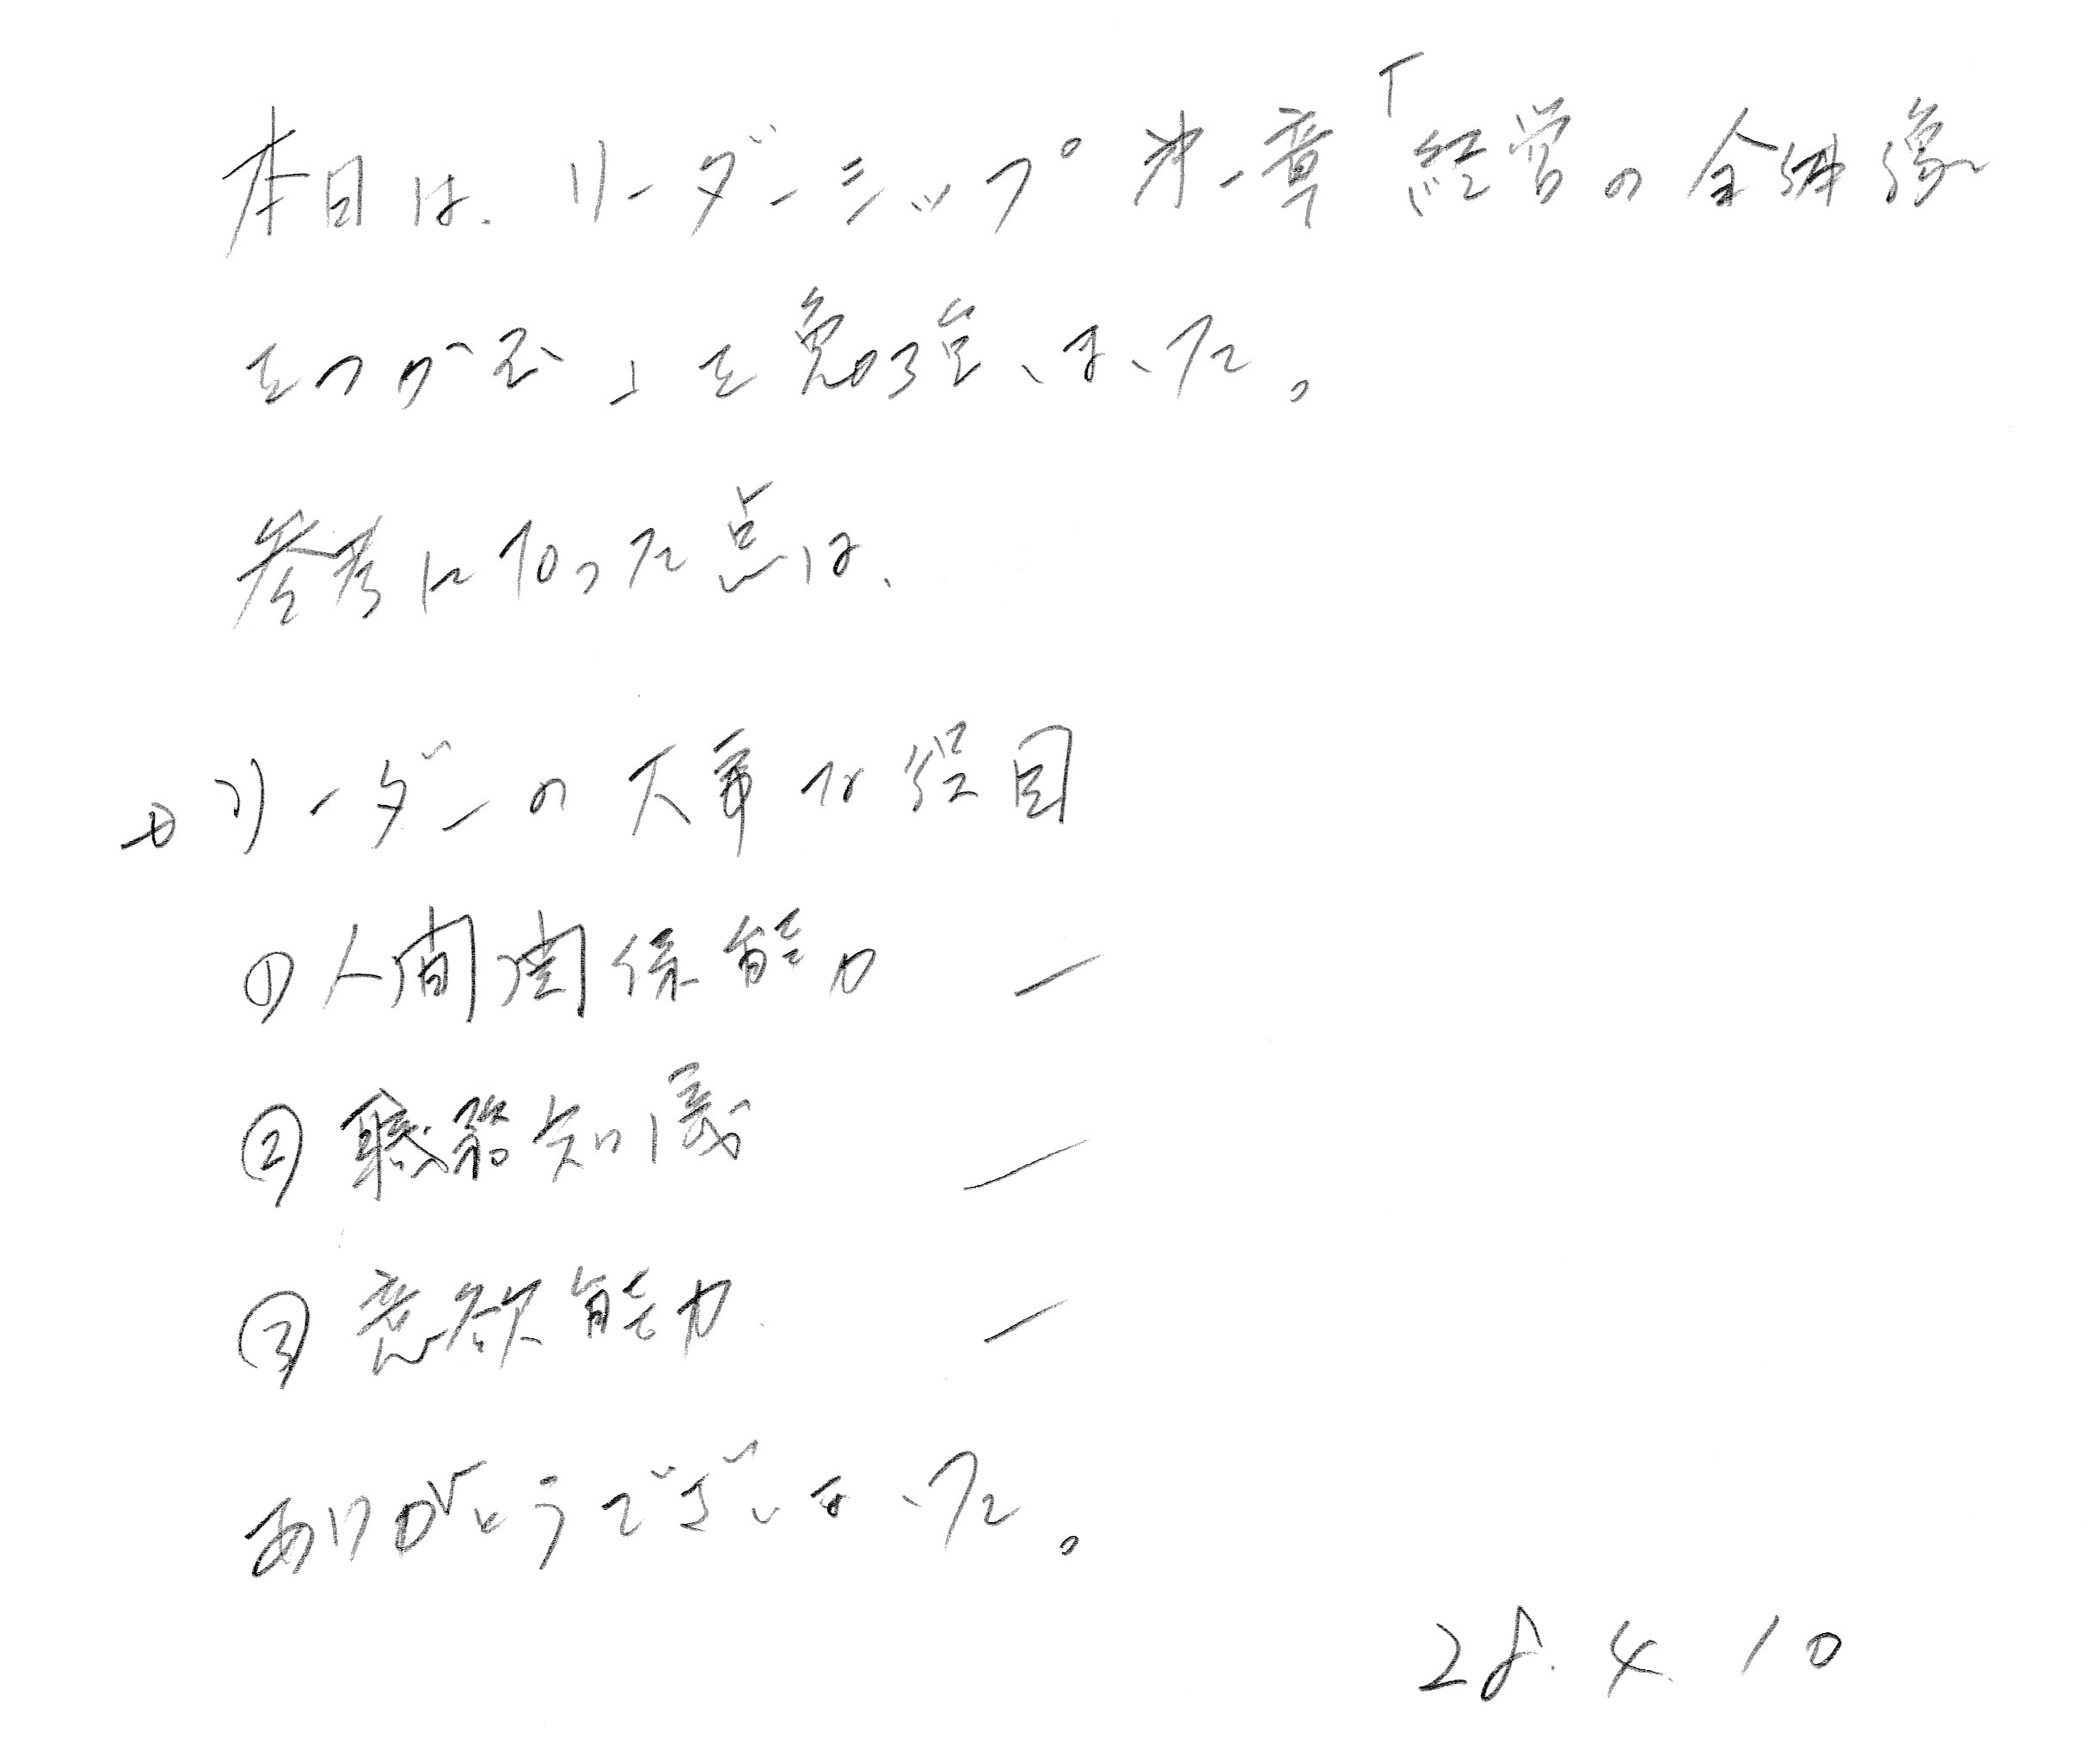 本日は、リーダーシップ第一章「経営の全体像
をつかむ」を勉強しました。
参考になった点は、
→リーダーの大事な役目
①人間関係能力 ー
②職務知識 ー
③意欲能力 ー
ありがとうございました。
28.4.10